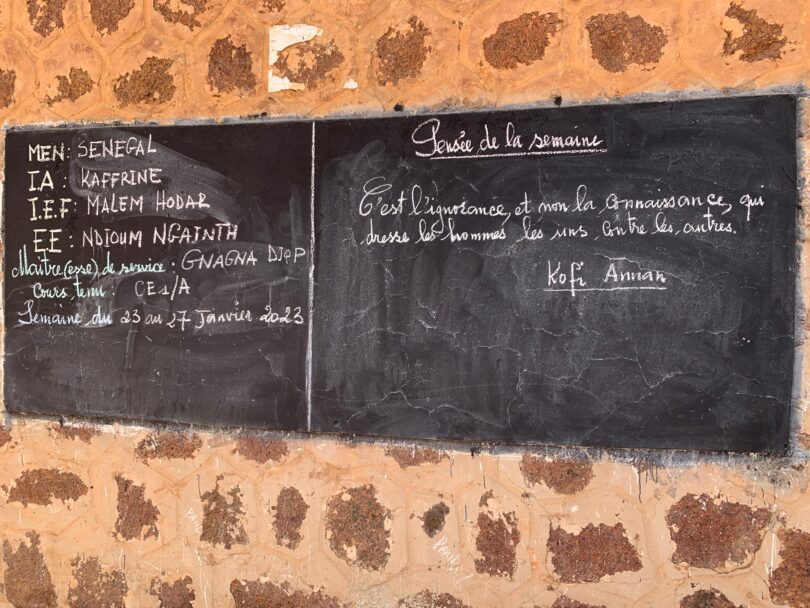 MEN: SENEGAL
IA : KAFFRINE
I.E.F: MALEM HODAR
EE : NDIOUM NGAINTH
Maître(esse) de service : GNAGNA DIOP
Cours tenu : CE1/A
Semaine du 23 au 27 Janvier 2023
Pensée de la semaine
C'est l'ignorance, et non la connaissance, qui
dresse les hommes les uns contre les autres.
Kofi Annan